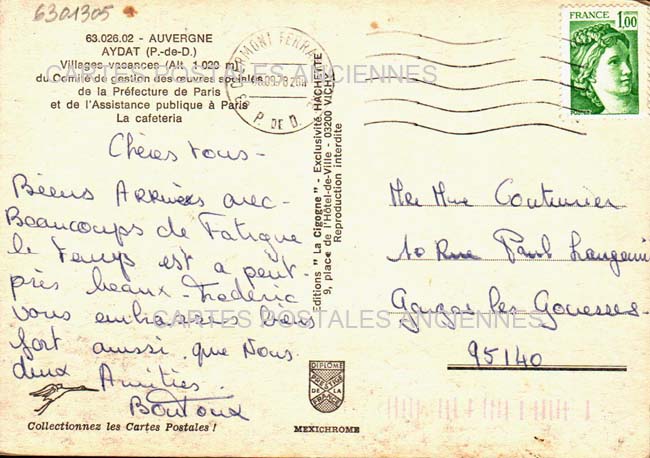 6301305
63.026.02 - AUVERGNE
AYDAT (P.-de-D.)
Villages-vacances (Alt. 1 020 m)
du Comité de gestion des œuvres sociales
de la Préfecture de Paris
et de l'Assistance publique à Paris
La cafeteria
CLERMONT FERRAND
P. DE D.
FRANCE
1,00
CARTES POSTALES ANCIENNES
Chères tous -
Biens Arrivées avec -
Beaucoups de Fatigue
le temps est a peut -
près beaux - Frédéric
vous embrasse bien
fort aussi que Nous
deux Amitiés.
Boutoux
Editions "La Cigogne" - Exclusivité HACHETTE
9, place de l'Hôtel-de-Ville - 03200 VICHY
Reproduction interdite
Mr Mme Couturier
10 Rue Paul Langevin
Garges les Gonesses
95140
CARTES POSTALES ANCIENNES
DIPLOME
PRESTIGE
DE LA
FRANCE
MEXICHROME
Collectionnez les Cartes Postales !